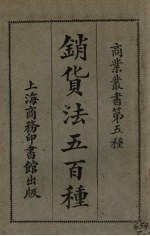 商業叢書第五種
銷貨法五百種
上海商務印書館出版